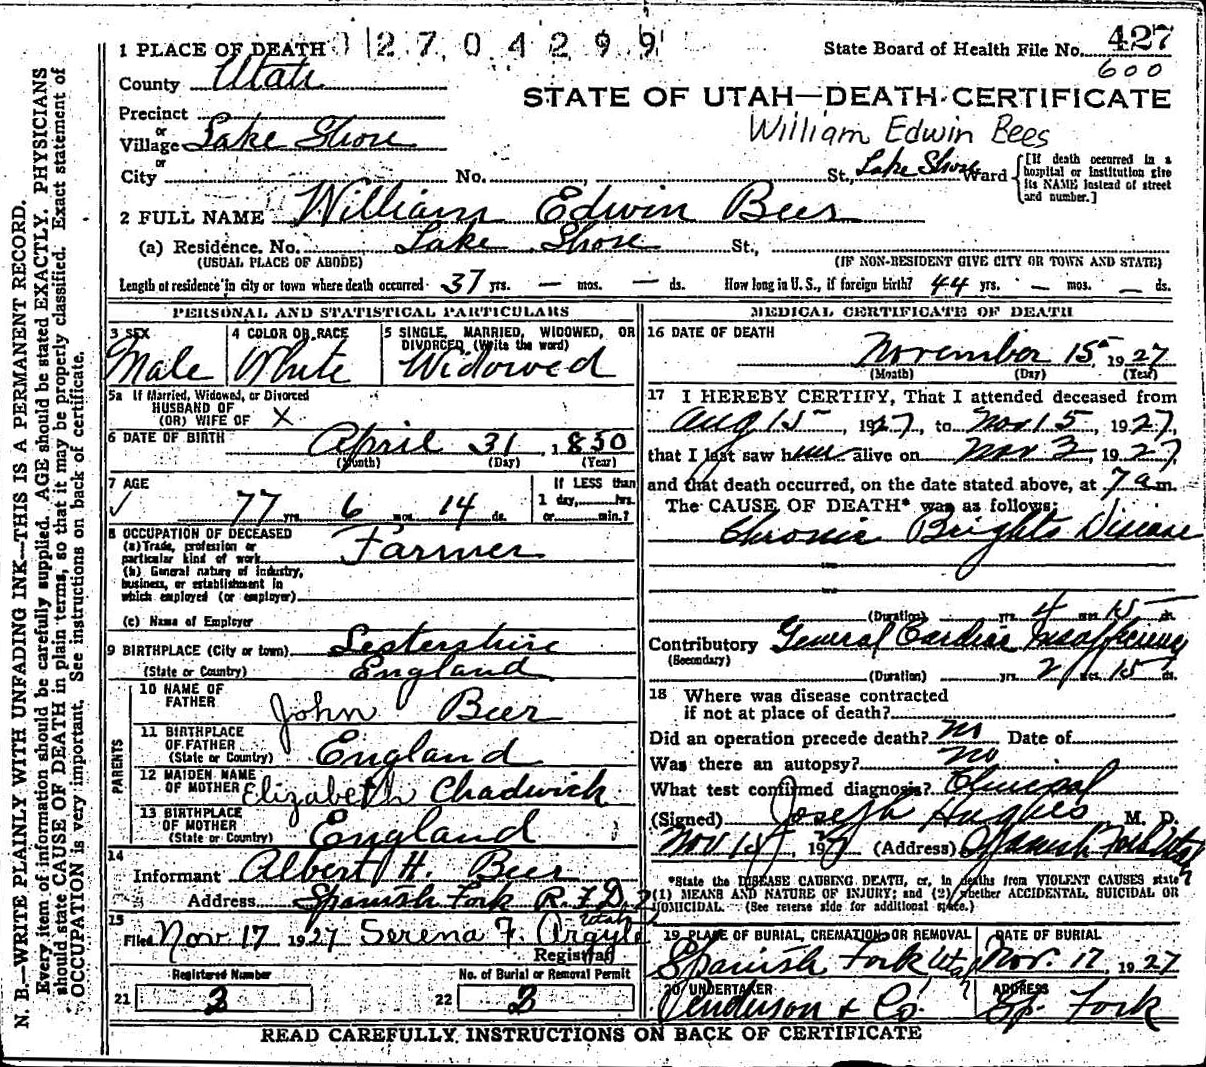 1 PLACE OF DEATH 2 7 0 4 2 9 9 State Board of Health File No. 427
County Utah 600
STATE OF UTAH—DEATH CERTIFICATE
Precinct
or
Village Lake Shore William Edwin Bees
or
City No. , St., Lake Shore Ward [If death occurred in a hospital or institution give its NAME instead of street and number.]
2 FULL NAME William Edwin Bees
(a) Residence, No. Lake Shore St.,
(USUAL PLACE OF ABODE) (IF NON-RESIDENT GIVE CITY OR TOWN AND STATE)
Length of residence in city or town where death occurred 37 yrs. — mos. — ds. How long in U. S., if foreign birth? 44 yrs. — mos. — ds.
PERSONAL AND STATISTICAL PARTICULARS
3 SEX 4 COLOR OR RACE 5 SINGLE, MARRIED, WIDOWED, OR
DIVORCED (Write the word)
Male White Widowed
5a If Married, Widowed, or Divorced
HUSBAND OF
(OR) WIFE OF X
6 DATE OF BIRTH April 31, 1850
(Month) (Day) (Year)
7 AGE If LESS than
77 yrs. 6 mos. 14 ds. 1 day, hrs.
or min.?
8 OCCUPATION OF DECEASED
(a) Trade, profession or
particular kind of work Farmer
(b) General nature of industry,
business, or establishment in
which employed (or employer)
(c) Name of Employer
9 BIRTHPLACE (City or town) Lestershire
(State or Country) England
PARENTS
10 NAME OF
FATHER John Beer
11 BIRTHPLACE
OF FATHER
(State or Country) England
12 MAIDEN NAME
OF MOTHER Elizabeth Chadwick
13 BIRTHPLACE
OF MOTHER
(State or Country) England
14
Informant Albert H. Beer
Address Spanish Fork R. F. D. 2
Utah
15
Filed Nov. 17 1927 Serena F. Argyle
Registrar
Registered Number No. of Burial or Removal Permit
21 3 22 3
MEDICAL CERTIFICATE OF DEATH
16 DATE OF DEATH
November 15, 1927
(Month) (Day) (Year)
17 I HEREBY CERTIFY, That I attended deceased from
Aug 15, 1927, to Nov. 15, 1927,
that I last saw him alive on Nov 3, 1927,
and that death occurred, on the date stated above, at 7 a m.
The CAUSE OF DEATH* was as follows:
Chronic Brights Disease
(Duration) yrs. 4 mos. 15 ds.
Contributory General Cardiac
(Secondary)
(Duration) yrs. 2 mos. 15 ds.
18 Where was disease contracted
if not at place of death?
Did an operation precede death? no Date of
Was there an autopsy? no
What test confirmed diagnosis? Clinical
(Signed) Joseph Hughes M. D.
Nov 15, 1927 (Address) Spanish Fork Utah
*State the DISEASE CAUSING DEATH, or, in deaths from VIOLENT CAUSES state
(1) MEANS AND NATURE OF INJURY; and (2) whether ACCIDENTAL, SUICIDAL OR
HOMICIDAL. (See reverse side for additional space.)
19 PLACE OF BURIAL, CREMATION, OR REMOVAL DATE OF BURIAL
Spanish Fork Utah Nov. 17, 1927
20 UNDERTAKER ADDRESS
& Co. Sp. Fork
READ CAREFULLY INSTRUCTIONS ON BACK OF CERTIFICATE
N. B.—WRITE PLAINLY WITH UNFADING INK—THIS IS A PERMANENT RECORD.
Every item of information should be carefully supplied. AGE should be stated EXACTLY. PHYSICIANS
should state CAUSE OF DEATH in plain terms, so that it may be properly classified. Exact statement of
OCCUPATION is very important. See instructions on back of certificate.